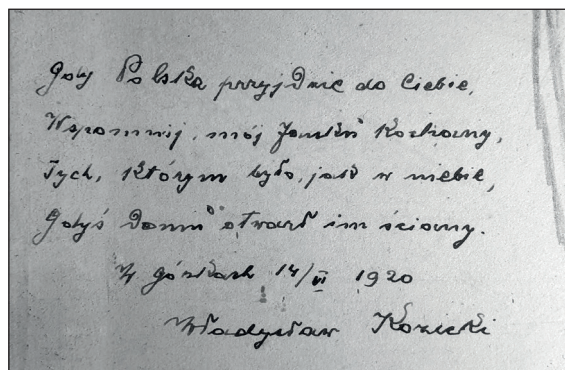 Gdy Polska przyjdzie do Ciebie,
Wspomnij, mój Janku Kochany,
Tych, którym było, jak w niebie,
Gdyś Domu otwarł im ściany.
W Górkach 14/VI 1920
Władysław Kozicki